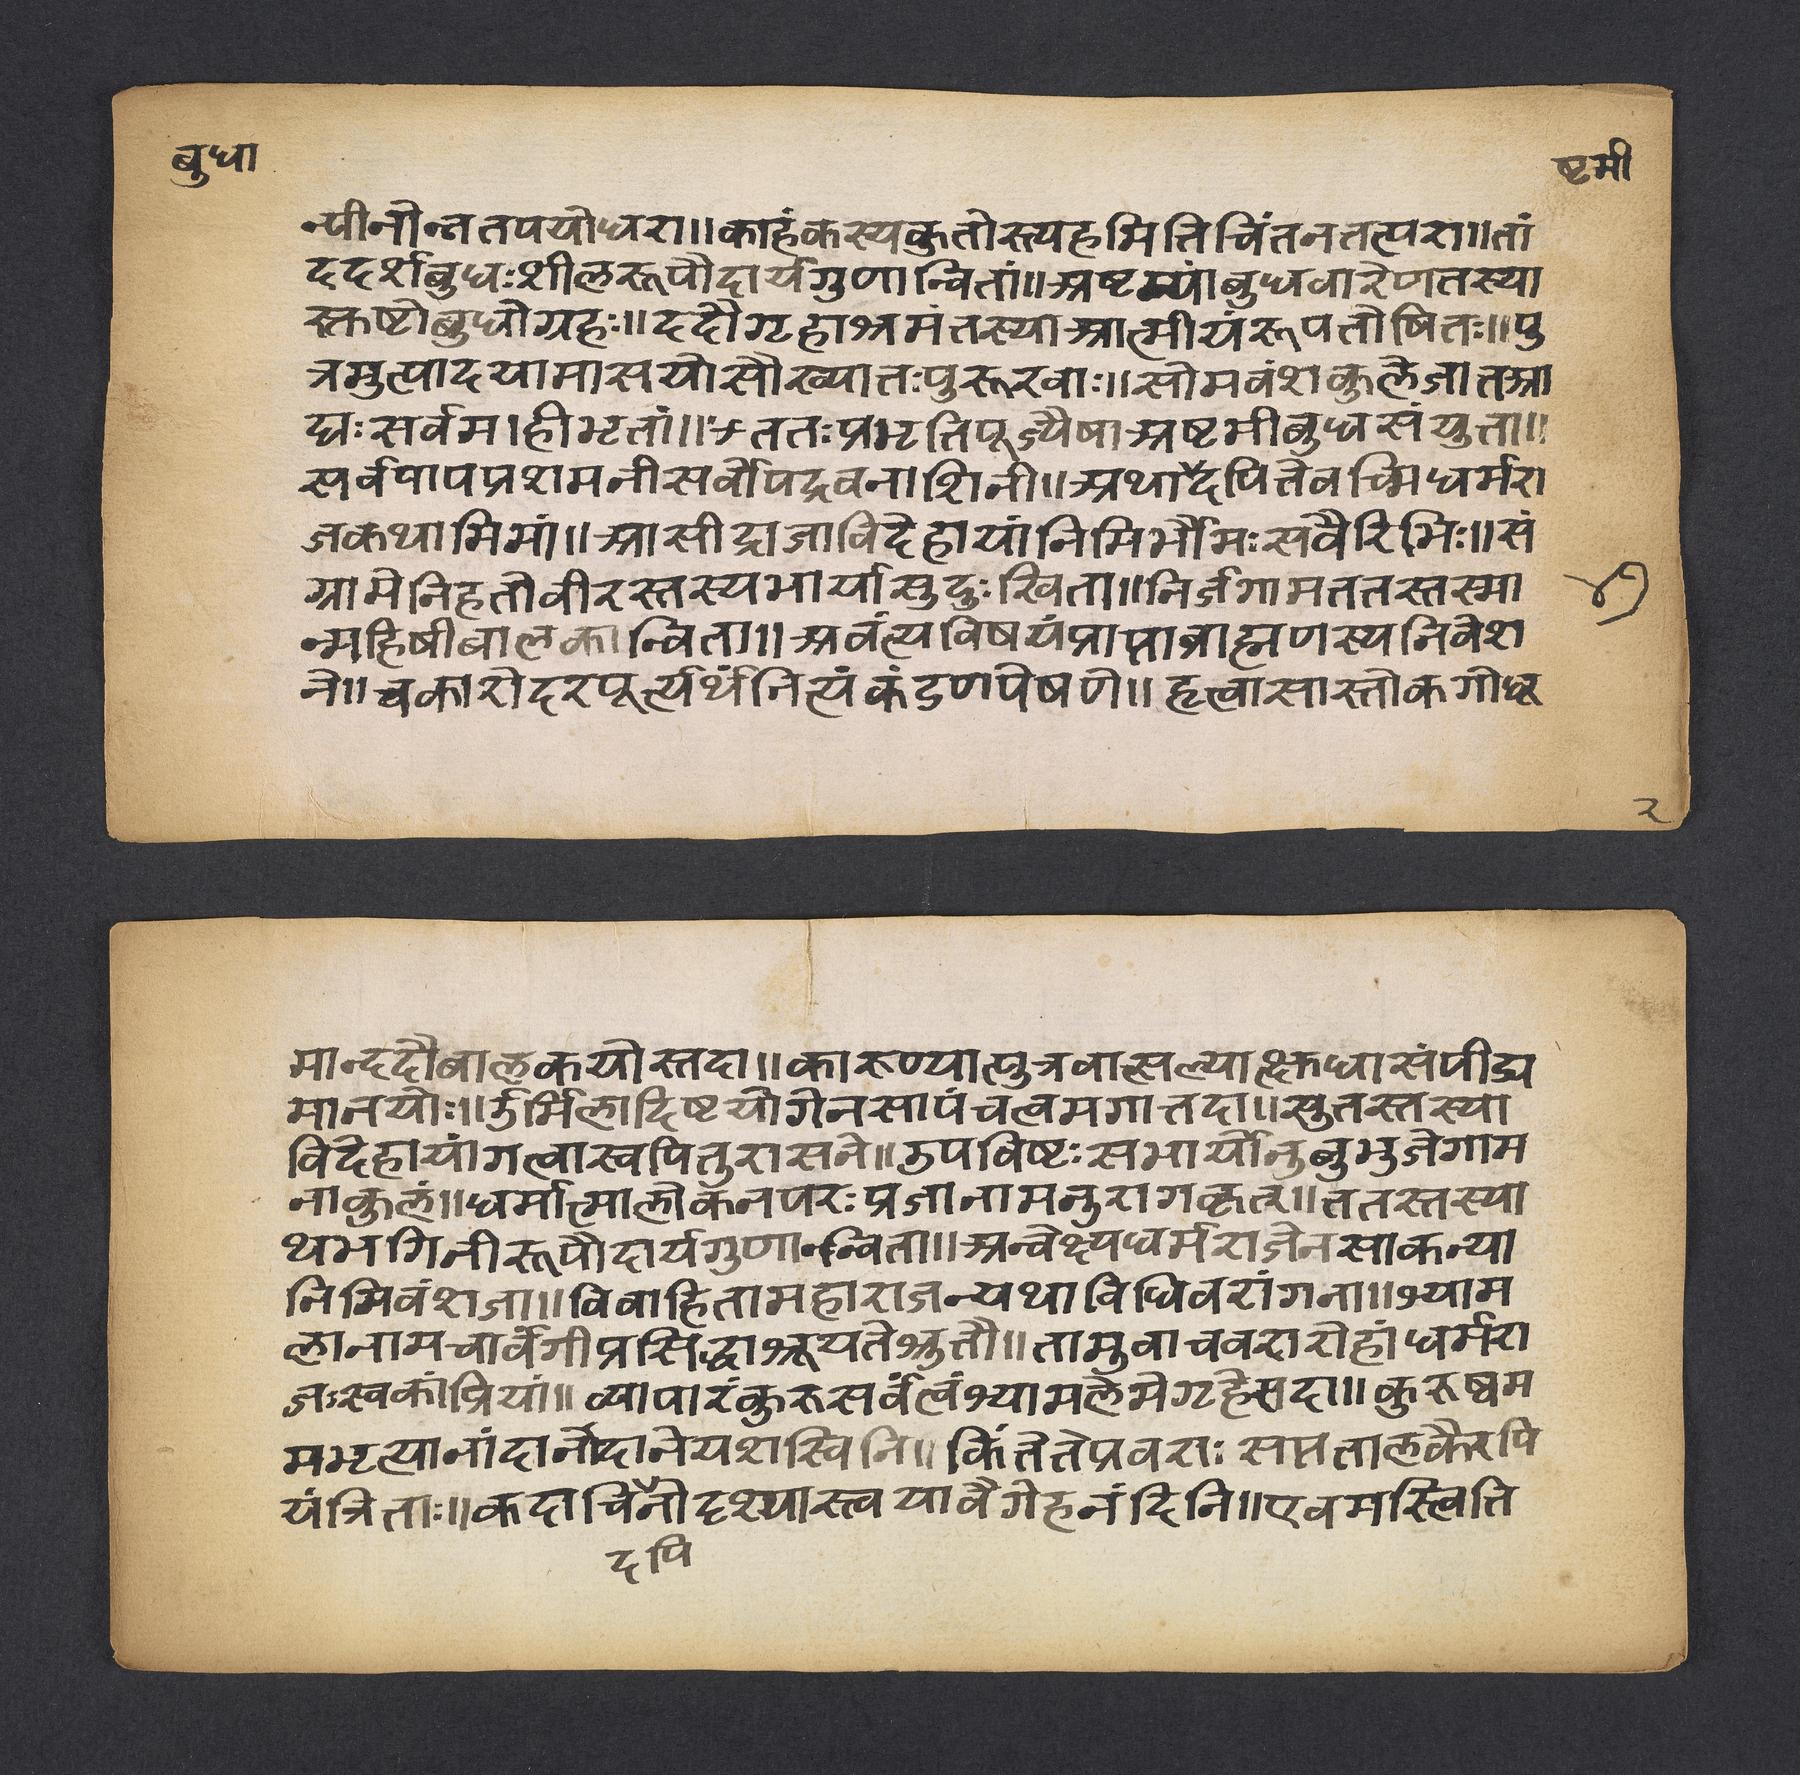 बुधा
ष्टमी
न्पीनोन्नतपयोधरा॥काहंकस्यकुतोस्त्यहमितिचिंतनतत्परा॥तां
ददर्शबुधःशीलरूपौदार्यगुणान्वितां॥अष्टम्यांबुधवारेणतस्या
स्तुष्टोबुधोग्रहः॥ददौगृहाश्रमंतस्याआत्मीयंरूपतोषितः॥पु
त्रमुत्पादयामासयोसौख्यातःपुरूरवाः॥सोमवंशकुलेजातआ
द्यःसर्वमाहीभृतां॥ततःप्रभृतिपूज्यैषाअष्टमीबुधसंयुता॥
सर्वपापप्रशमनीसर्वोपद्रवनाशिनी॥अथादपितेवच्मिधर्मरा
जकथामिमां॥आसीद्राजाविदेहायांनिमिर्भौमःसवैरिभिः॥सं
ग्रामेनिहतोवीरस्तस्यभार्यासुदुःखिता॥निर्जगामततस्तस्मा
न्महिषीबालकान्विता॥अवंत्यविषयंप्राप्ताब्राह्मणस्यनिवेश
ने॥चकारोदरपूर्त्यर्थंनित्यंकंडणपेषणे॥हृत्वासास्तोकगोधू
२
मान्ददौबालकयोस्तदा॥कारूण्यात्पुत्रवात्सल्यात्क्षुधासंपीड्य
मानयोः॥उर्मिलादिष्टयोगेनसापंचत्वमगात्तदा॥सुतस्तस्या
विदेहायांगत्वास्वपितुरासने॥उपविष्टःसभार्योनुबुभुजेगाम
नाकुलं॥धर्मात्मालोकनपरःप्रजानामनुरागकृत्॥ततस्तस्या
थभगिनीरूपौदार्यगुणान्न्विता॥अन्वेक्ष्यधर्मराजेनसाकन्या
निमिवंशजा॥विवाहितामहाराजन्यथाविधिवरांगना॥श्याम
लानामचार्वंगीप्रसिद्धाश्रूयतेश्रुतौ॥तामुवाचवरारोहांधर्मरा
जःस्वकांप्रियां॥व्यापारंकुरूसर्वंत्वंश्यामलेमेगृहेसदा॥कुरूष्वम
मभृत्यानांदानोदानेयशस्विनि॥किंतेतेप्रवराःसप्ततालकैरपि
यंत्रिताः॥कदाचिनोदृश्यास्त्वयावैगेहनंदिनि॥एवमस्त्विति
दपि